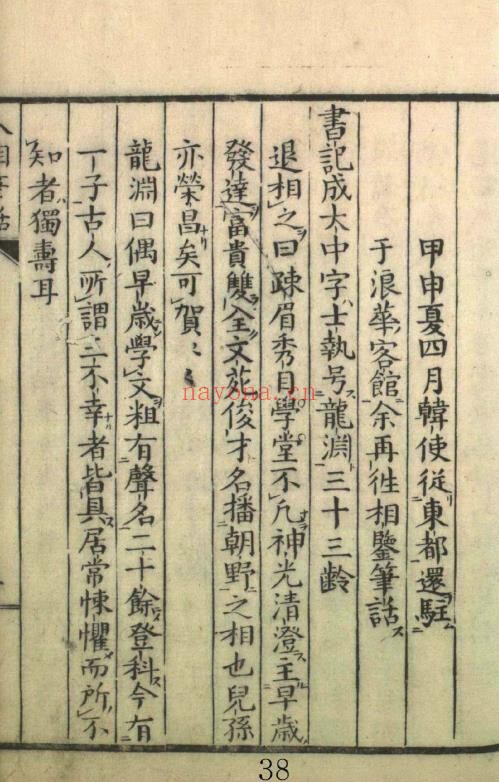 甲申夏四月韓使從東都還駐
于浪華客館余再往相鑒筆話
書記成大中字士執号龍淵三十三齡
退相之曰疎眉秀目學堂不凡神光清澄主早歲
發達富貴雙全文苑俊才名播朝野之相也兒孫
亦榮昌矣可賀〻〻
龍淵曰偶早歲學文粗有聲名二十餘登科今有
丁子古人所謂三不幸者皆具居常悚懼而所不
知者獨壽耳
nayona.cn
38